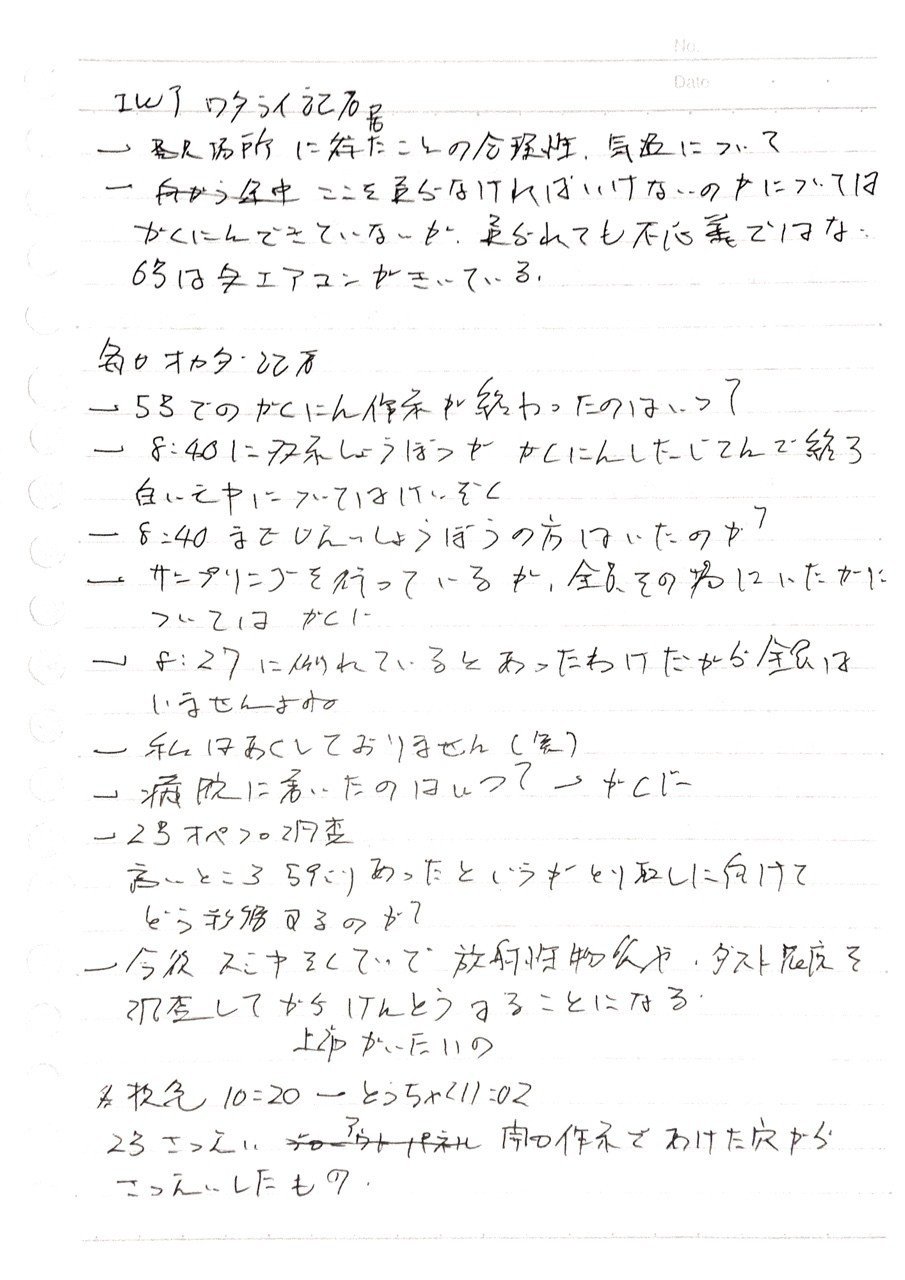 No.
Date
IWJ ワタライ記者
一 場所に 居たことの合理性、気温について
一 向かう途中 ここを通らなければいけないのかについては
かくにんできていないが、通られても不思議ではない
6号は エアコンがきいている.
毎日オカダ記者
一 5号でのかくにん作業が終わったのはいつ?
一 8:40に双葉しょうぼうが かくにんしたじてんで終了
白い については けいぞく
一 8:40 まで しょうぼうの方はいたのか?
一 サンプリングを行っているが、全員その場にいたかに
ついては かくに
一 8:27 に れているとあったわけだから全員は
いませんよね
一 私はあくしておりません(笑)
一 病院に着いたのはいつ? → かくに
一 2号オペフロ調査
高いところ 59 あったというが とり出しに向けて
どう するのか?
一 今後 ていで 放射性物質や、ダスト濃度を
調査してからけんとうすることになる.
上部 かいたいの
救急 10:20 → とうちゃく11:02
2号さつえい ブローアウトパネル 開口作業であけた穴から
さつえいしたもの.